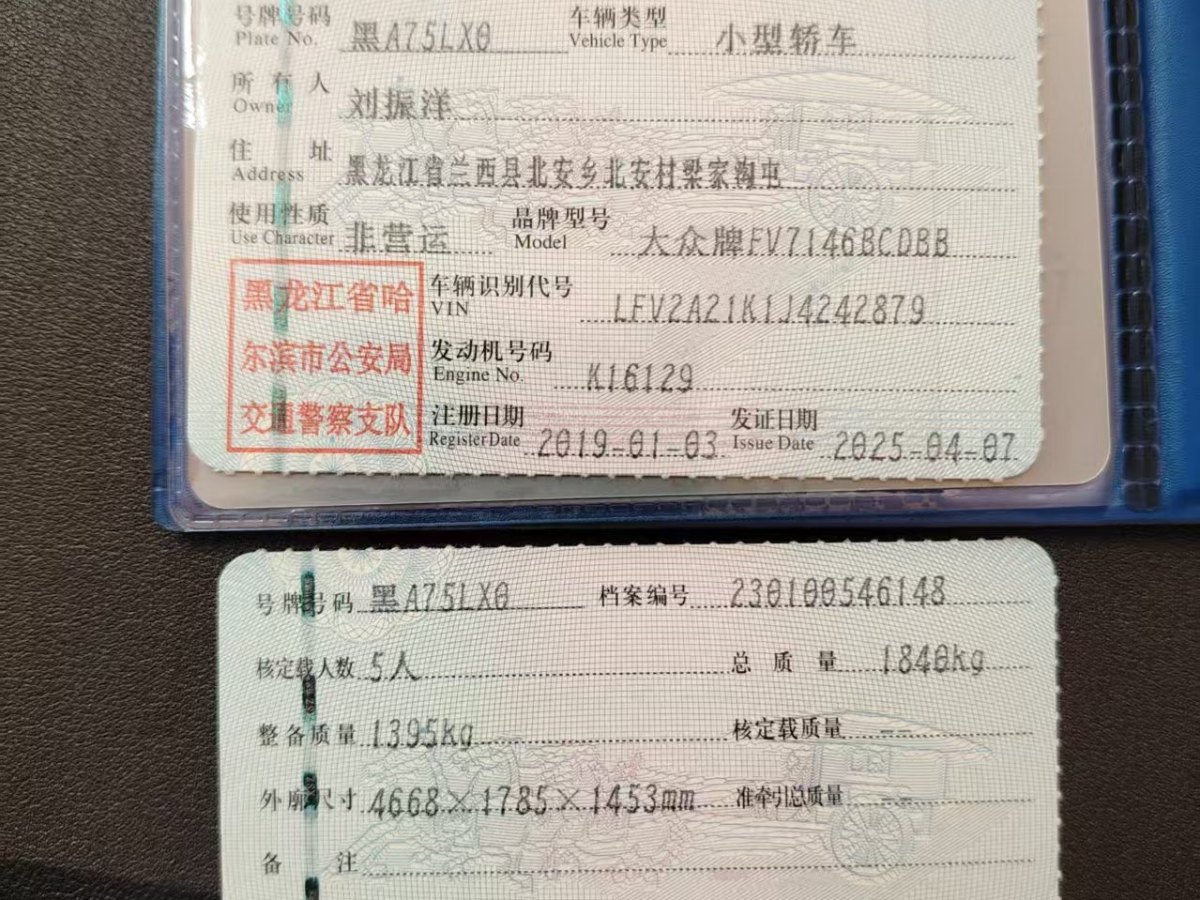 号牌号码 黑A75LX0 车辆类型 小型轿车
Plate No. Vehicle Type
所有人 刘振洋
Owner
住址 黑龙江省兰西县北安乡北安村梁家沟屯
Address
使用性质 非营运 品牌型号 大众牌FV7146BCDBB
Use Character Model
黑龙江省哈
尔滨市公安局
交通警察支队
车辆识别代号 LFV2A21K1J4242879
VIN
发动机号码 K16129
Engine No.
注册日期 2019-01-03 发证日期 2025-04-07
Register Date Issue Date
号牌号码 黑A75LX0 档案编号 230100546148
核定载人数 5人 总质量 1840kg
整备质量 1395kg 核定载质量 --
外廓尺寸 4668×1785×1453mm 准牵引总质量 --
备注